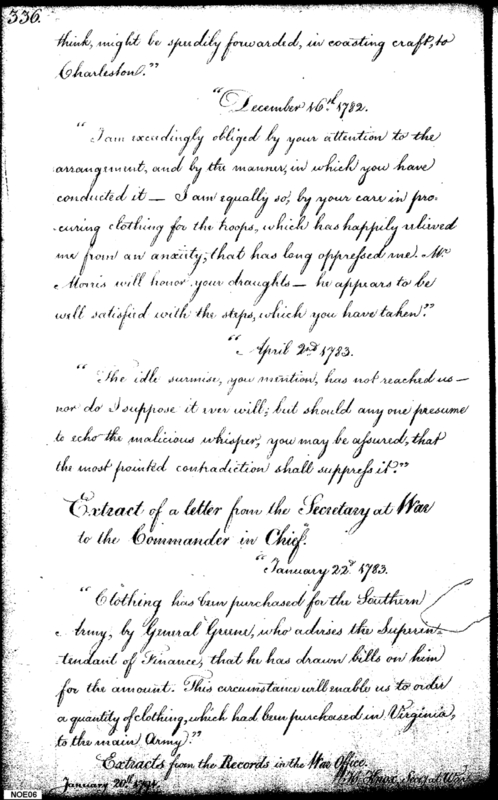 336.
think, might be speedily forwarded, in coasting craft, to
Charleston."
"December 16th. 1782.
"I am exceedingly obliged by your attention to the
arrangement, and by the manner, in which you have
conducted it — I am equally so, by your care in pro-
-curing clothing for the troops, which has happily relieved
me from an anxiety, that has long oppressed me. Mr.
Morris will honor your draughts — he appears to be
well satisfied with the steps, which you have taken."
"April 2nd. 1783.
"The idle surmise, you mention, has not reached us —
nor do I suppose it ever will; but should any one presume
to echo the malicious whisper, you may be assured, that
the most pointed contradiction shall suppress it."
Extract of a letter from the Secretary at War
to the Commander in Chief.
"January 22d. 1783.
"Clothing has been purchased for the Southern
Army, by General Greene, who advises the Superin-
-tendant of Finance, that he has drawn bills on him
for the amount. This circumstance will enable us to order
a quantity of clothing, which had been purchased in Virginia,
to the main Army."
Extracts from the Records in the War Office.
January 20th. 1791. Knox, Secy. at War
NOE06